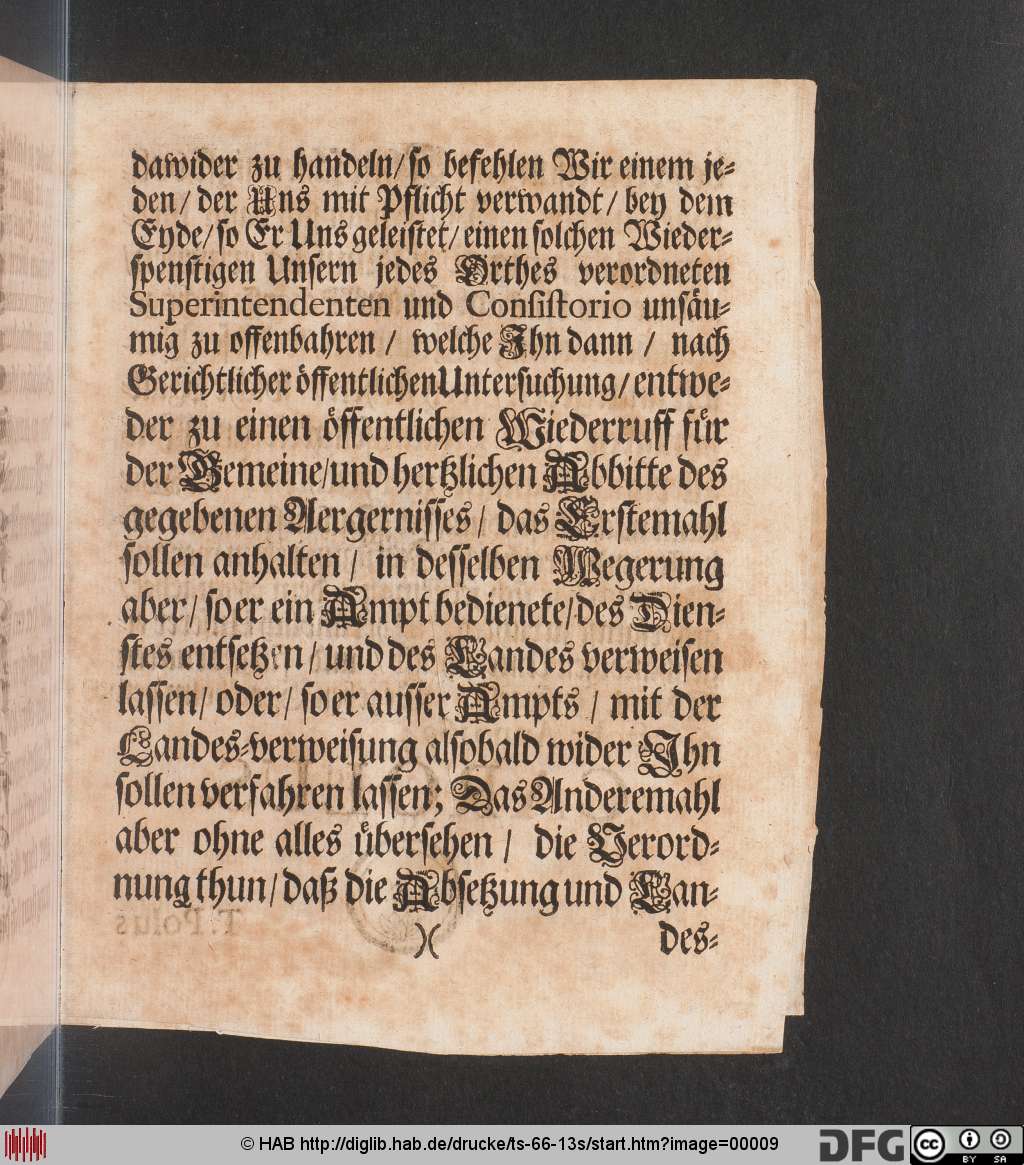 dawider zu handeln/ so befehlen Wir einem je-
den/ der Uns mit Pflicht verwandt/ bey dem
Eyde/ so Er Uns geleistet/ einen solchen Wieder-
spenstigen Unsern jedes Orthes verordneten
Superintendenten und Consistorio unsäu-
mig zu offenbahren / welche Ihn dann / nach
Gerichtlicher öffentlichen Untersuchung/ entwe-
der zu einen öffentlichen Wiederruff für
der Gemeine/ und hertzlichen Abbitte des
gegebenen Aergernisses/ das Erstemahl
sollen anhalten / in desselben Wegerung
aber/ so er ein Ampt bedienete/ des Dien-
stes entsetzen/ und des Landes verweisen
lassen/ oder/ so er ausser Ampts / mit der
Landes-verweisung alsobald wider Ihn
sollen verfahren lassen; Das Anderemahl
aber ohne alles übersehen / die Verord-
nung thun/ daß die Absetzung und Lan-
)( des-
© HAB http://diglib.hab.de/drucke/ts-66-13s/start.htm?image=00009
DFG cc BY SA